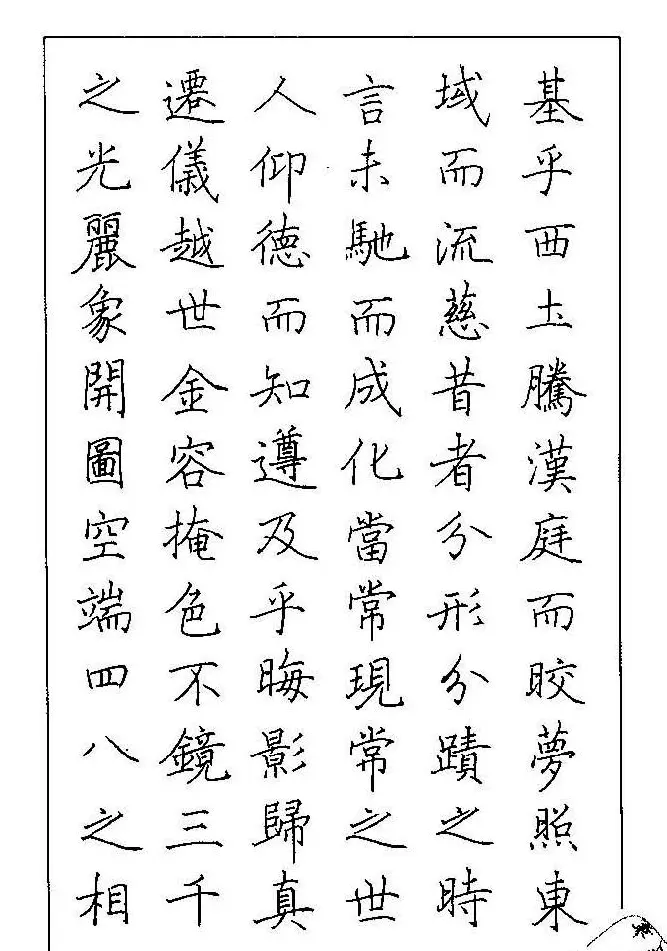 基乎西土騰漢庭而皎夢照東
域而流慈昔者分形分蹟之時
言未馳而成化當常現常之世
人仰德而知遵及乎晦影歸真
遷儀越世金容掩色不鏡三千
之光麗象開圖空端四八之相